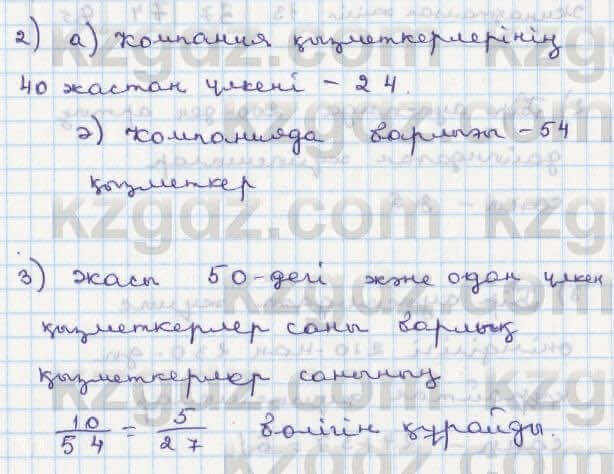 2) а) Компания қызметкерлерінің
40 жастан үлкені - 24.
ә) Компанияда барлығы - 54
қызметкер
3) Жасы 50-дегі және одан үлкен
қызметкерлер саны барлық
қызметкерлер санының
10/54 = 5/27 бөлігін құрайды.
kzgdz.com